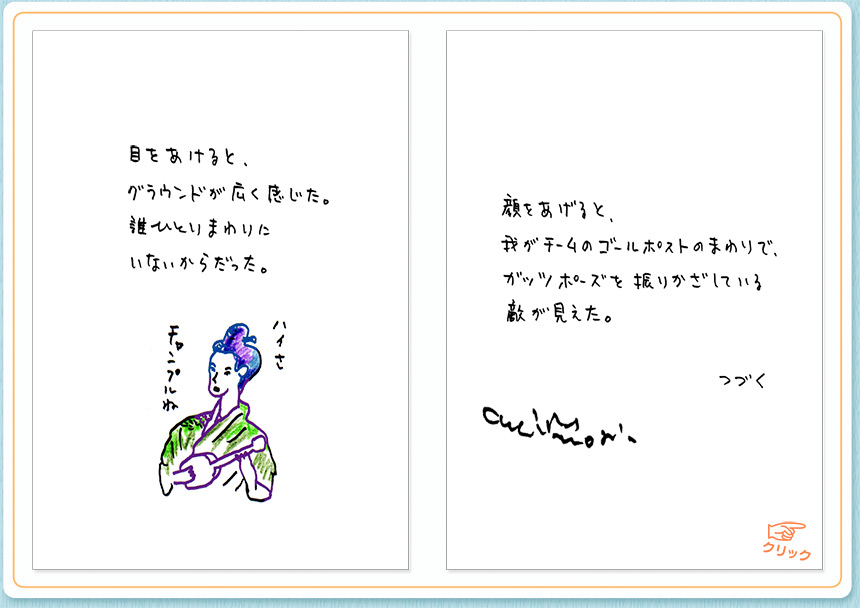 目をあけると、
グラウンドが広く感じた。
誰ひとりまわりに
いないからだった。
ハイさ
チャンプルね
顔をあげると、
我がチームのゴールポストのまわりで、
ガッツポーズを振りかざしている
敵が見えた。
つづく
クリック